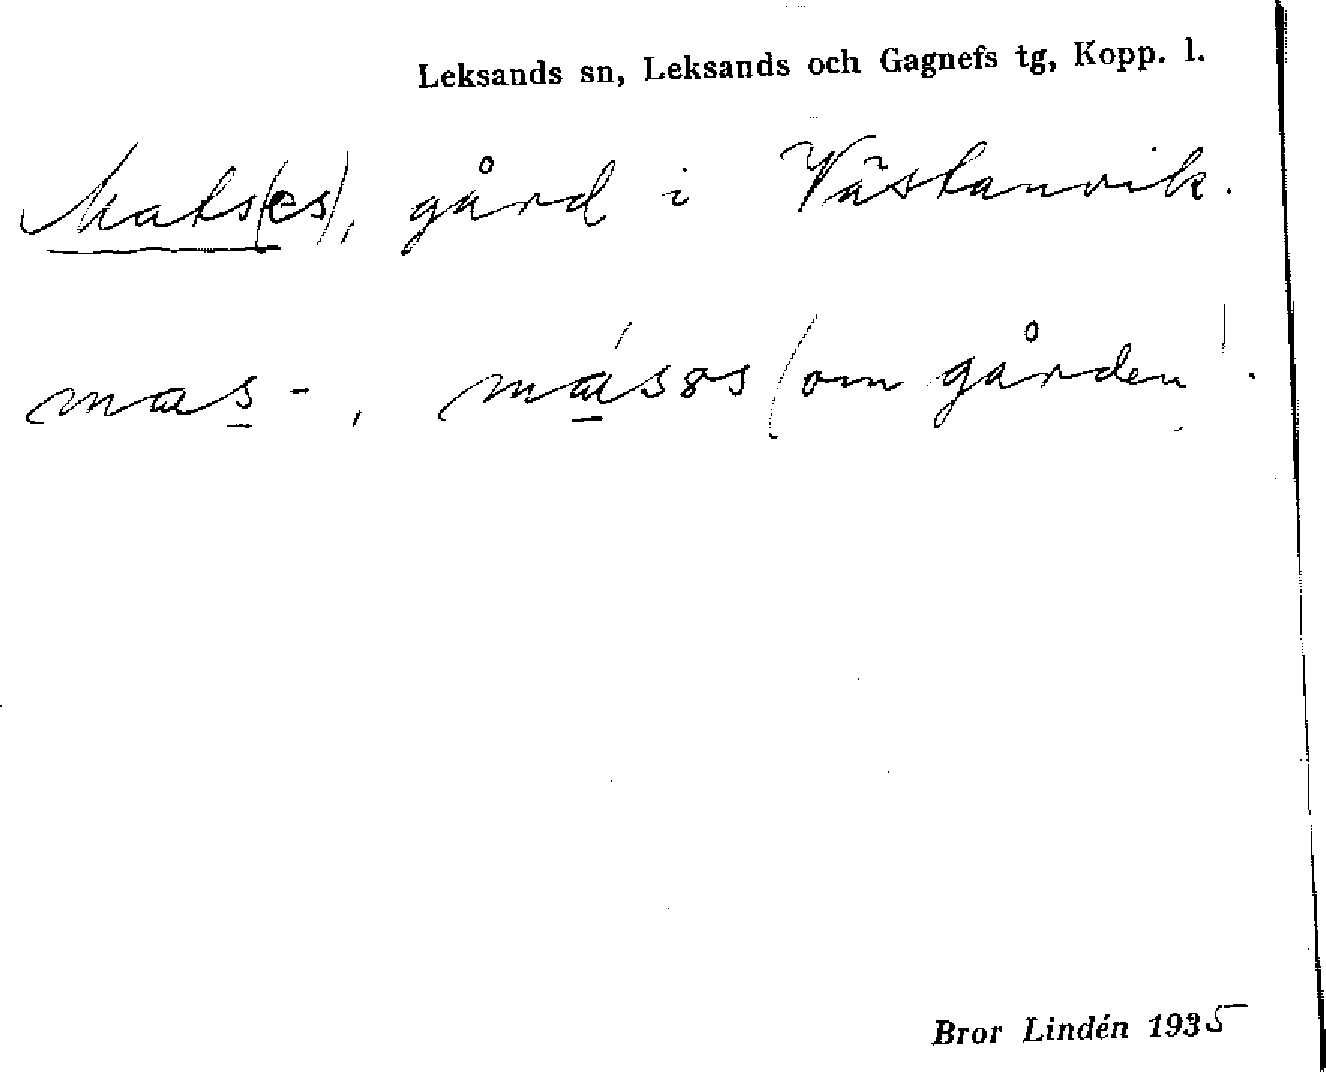 Leksands sn, Leksands och Gagnefs tg, Kopp. l.
Mats(es), gård i Västanvik.
mas-, másos (om gården).
Bror Lindén 1935